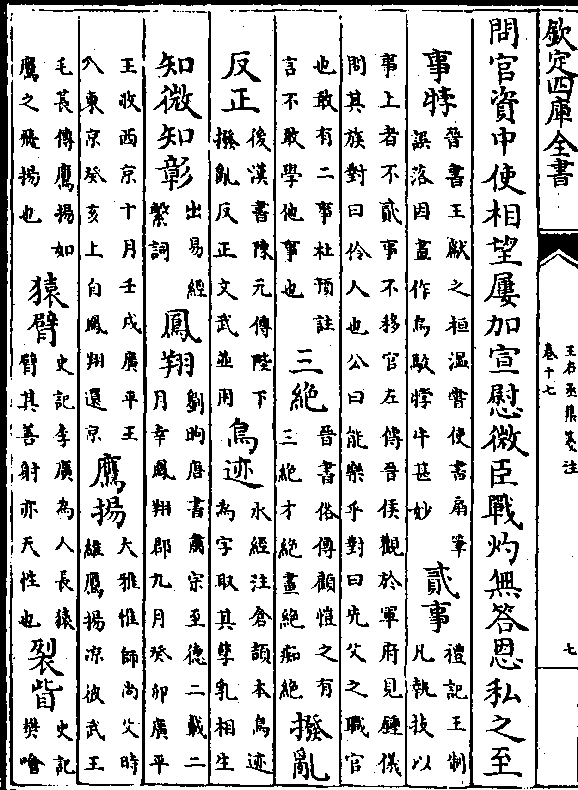 欽定四庫全書
王右丞集箋注
卷十七
七
問官資中使相望屢加宣慰微臣戰灼無答恩私之至
事牸
晉書王獻之桓温嘗使書扇筆
誤落因畫作烏駮牸牛甚妙
貳事
禮記王制
凡執技以
事上者不貳事不移官左傳晉侯觀於軍府見鍾儀
問其族對曰伶人也公曰能樂乎對曰先父之職官
也敢有二事杜預註
言不敢學他事也
三絶
晉書俗傳顧愷之有
三絶才絶畫絶痴絶
撥亂
反正
後漢書陳元傳陛下
撥亂反正文武並用
鳥迹
水經注倉頡本鳥迹
為字取其孳乳相生
知微知彰
出易經
繫詞
鳳翔
劉昫唐書肅宗至德二載二
月幸鳳翔郡九月癸卯廣平
王收西京十月壬戌廣平王
入東京癸亥上自鳳翔還京
鷹揚
大雅惟師尚父時
維鷹揚涼彼武王
毛萇傳鷹揚如
鷹之飛揚也
猿臂
史記李廣為人長猿
臂其善射亦天性也
裂眥
史記
樊噲